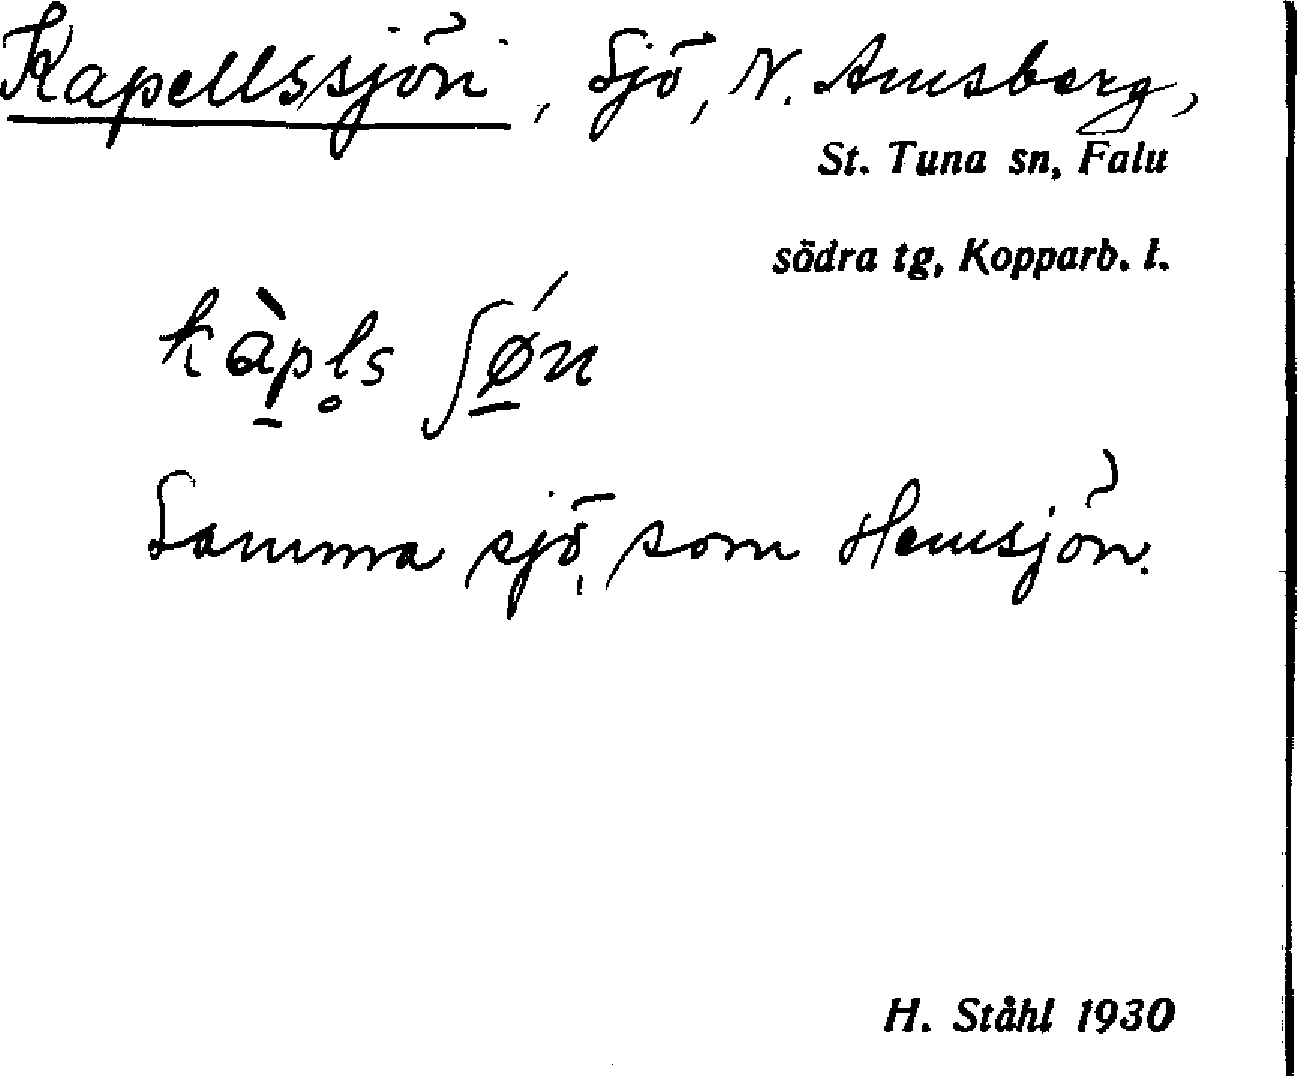 Kapellssjön, Sjö, N. Amsberg,
St. Tuna sn, Falu
södra tg, Kopparb. l.
kàp̲l̥s ʃǿ̲n
Samma sjö, som Hemsjön.
H. Ståhl 1930